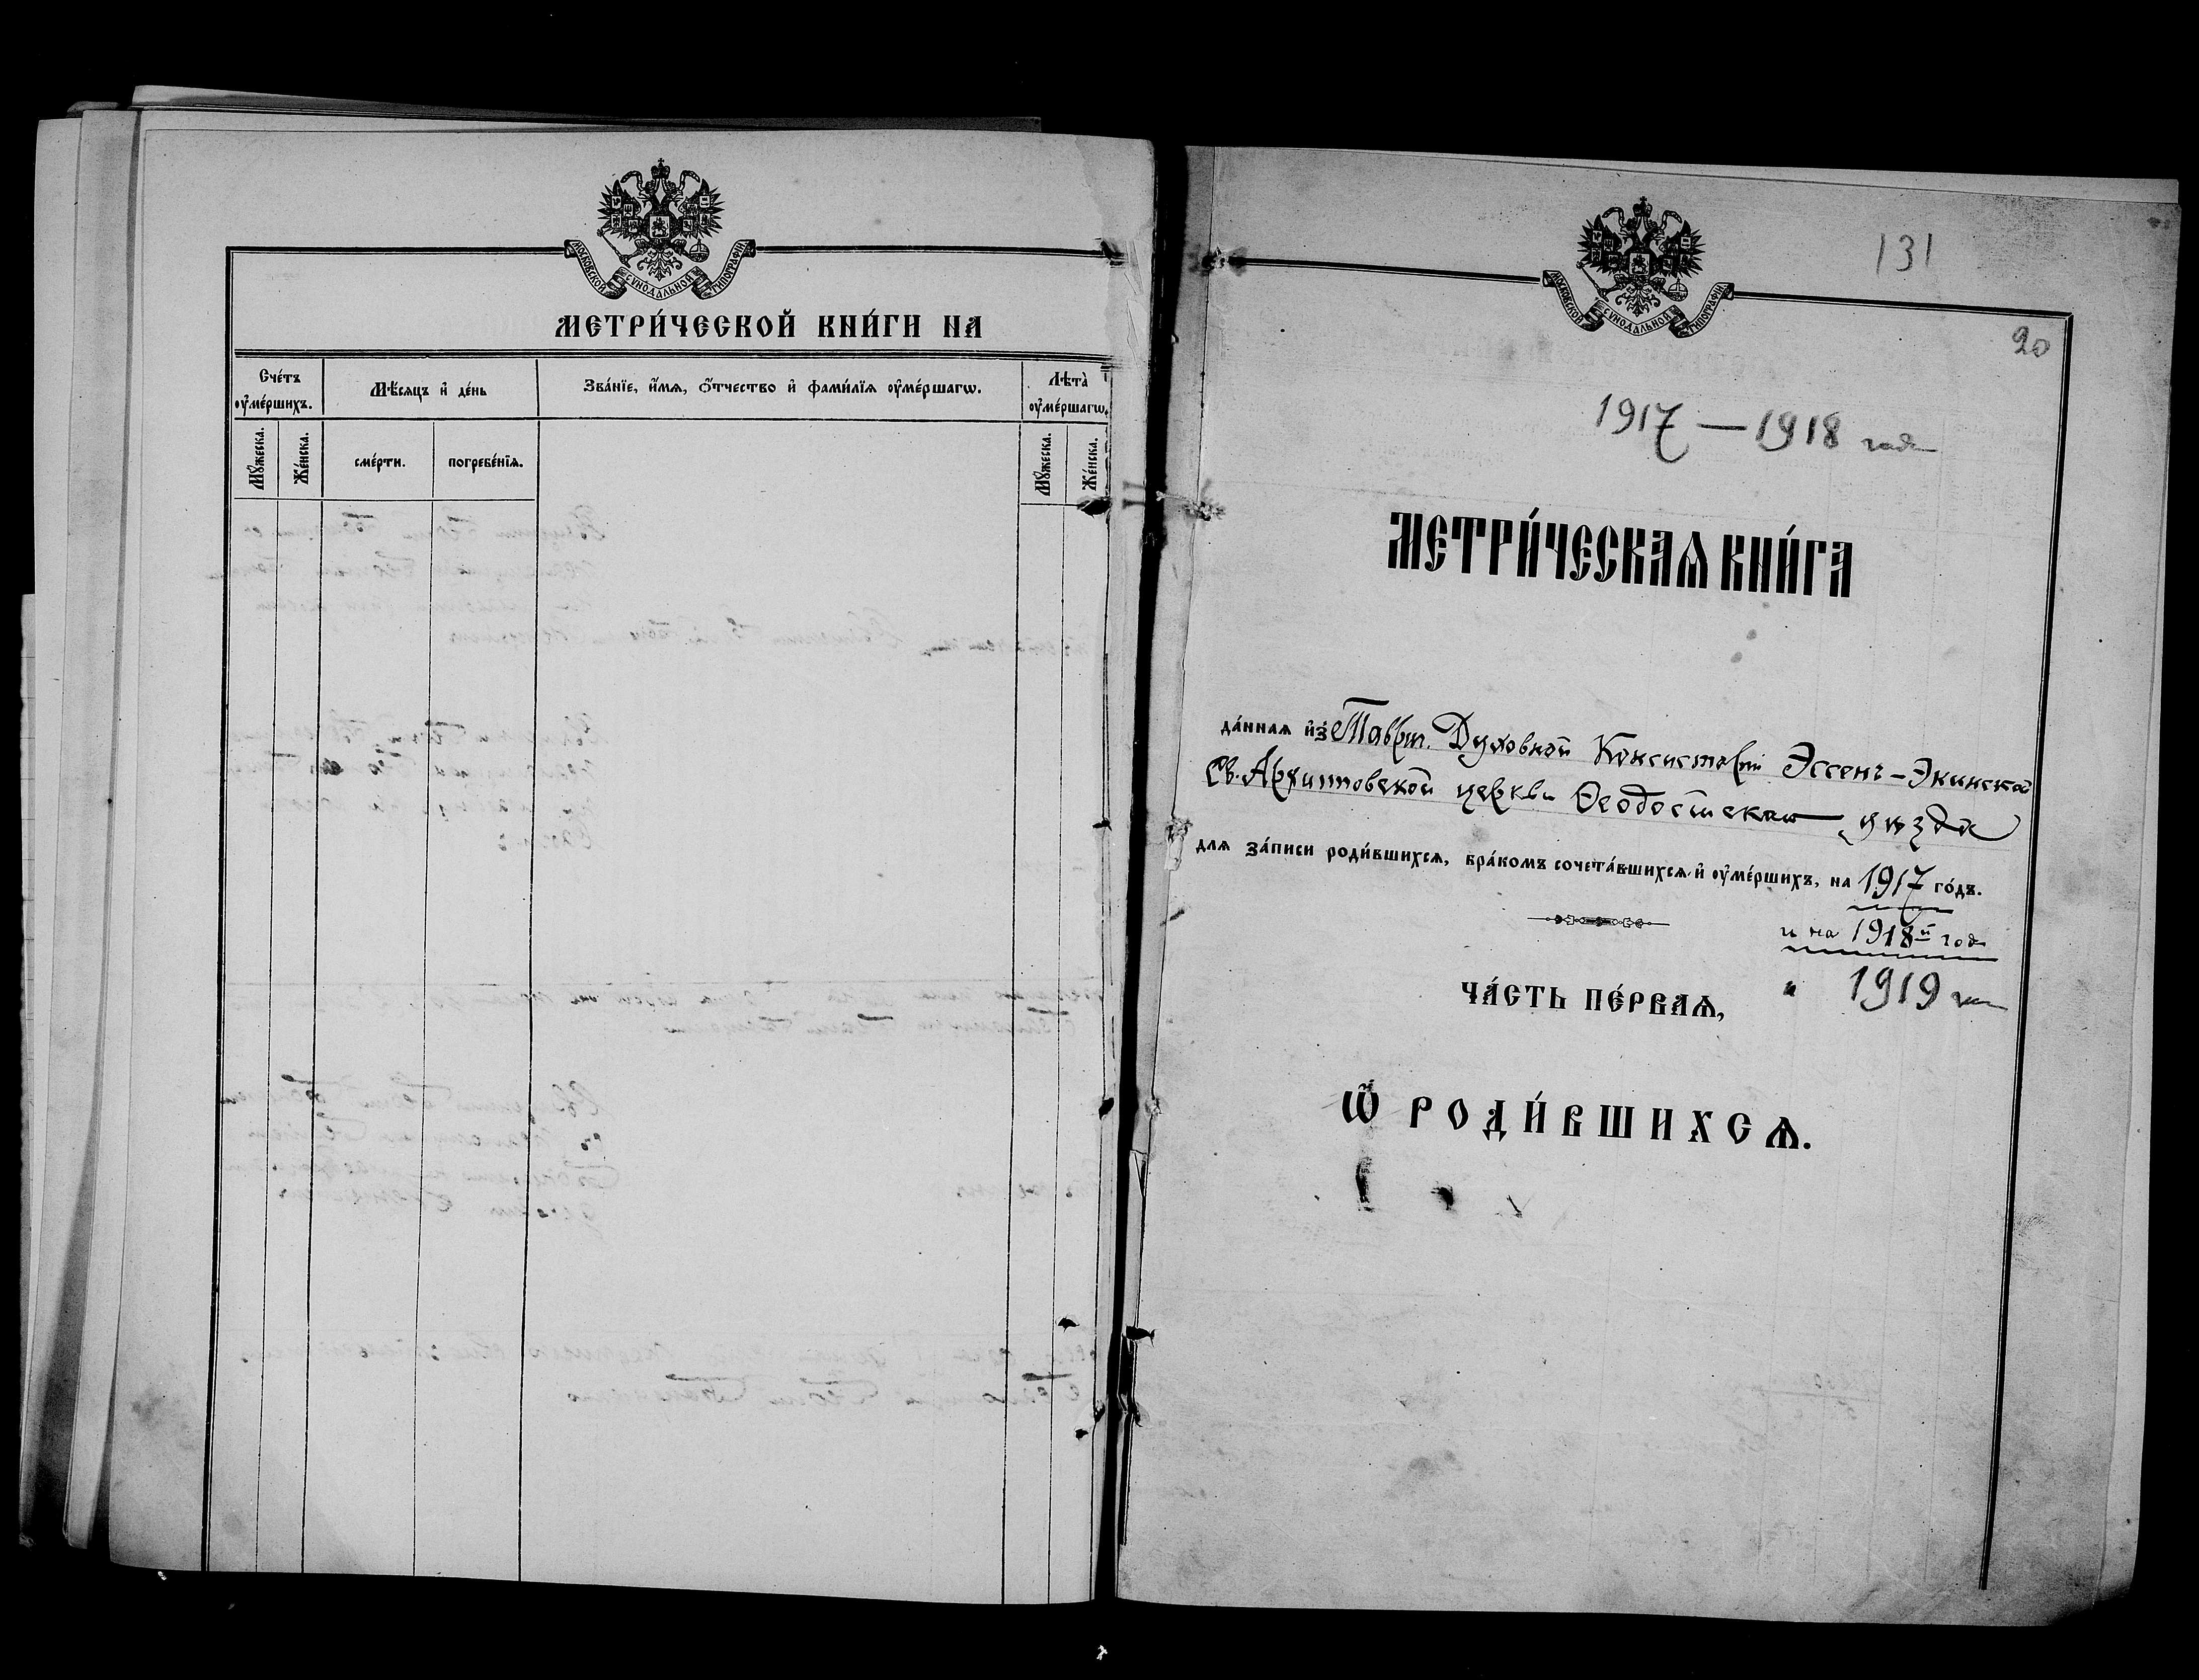 МОСКОВСКОЙ СѴНОДАЛЬНОЙ ТИПОГРАФІИ
МЕТРИ́ЧЕСКОЙ КНИ́ГИ НА
Сче́тъ оу҆ме́ршихъ.
Мѣ́сяцъ и҆ де́нь
Зва́нїе, и҆́мя, ѻ҆́тчество и҆ фами́лїя оу҆ме́ршагѡ.
Лѣта̀ оу҆ме́ршагѡ.
Мꙋ́жеска.
Же́нска.
сме́рти.
погребе́нїя.
Мꙋ́жеска.
Же́нска.
МОСКОВСКОЙ СѴНОДАЛЬНОЙ ТИПОГРАФІИ
131
20
1917 — 1918 года
МЕТРИ́ЧЕСКАѦ КНИ́ГА
да́нная и҆з̾ Тавр. Духовной Консисторіи Эссенъ-Экинской
Св. Архипповской церкви Ѳеодосійскаго уѣзда
для за́писи роди́вшихся, бра́комъ сочета́вшихся и҆ оу҆ме́ршихъ, на 1917 го́дъ.
и на 1918й год
" 1919
ЧА́СТЬ ПЕ́РВАѦ,
Ѡ҆ РОДИ́ВШИХСѦ.